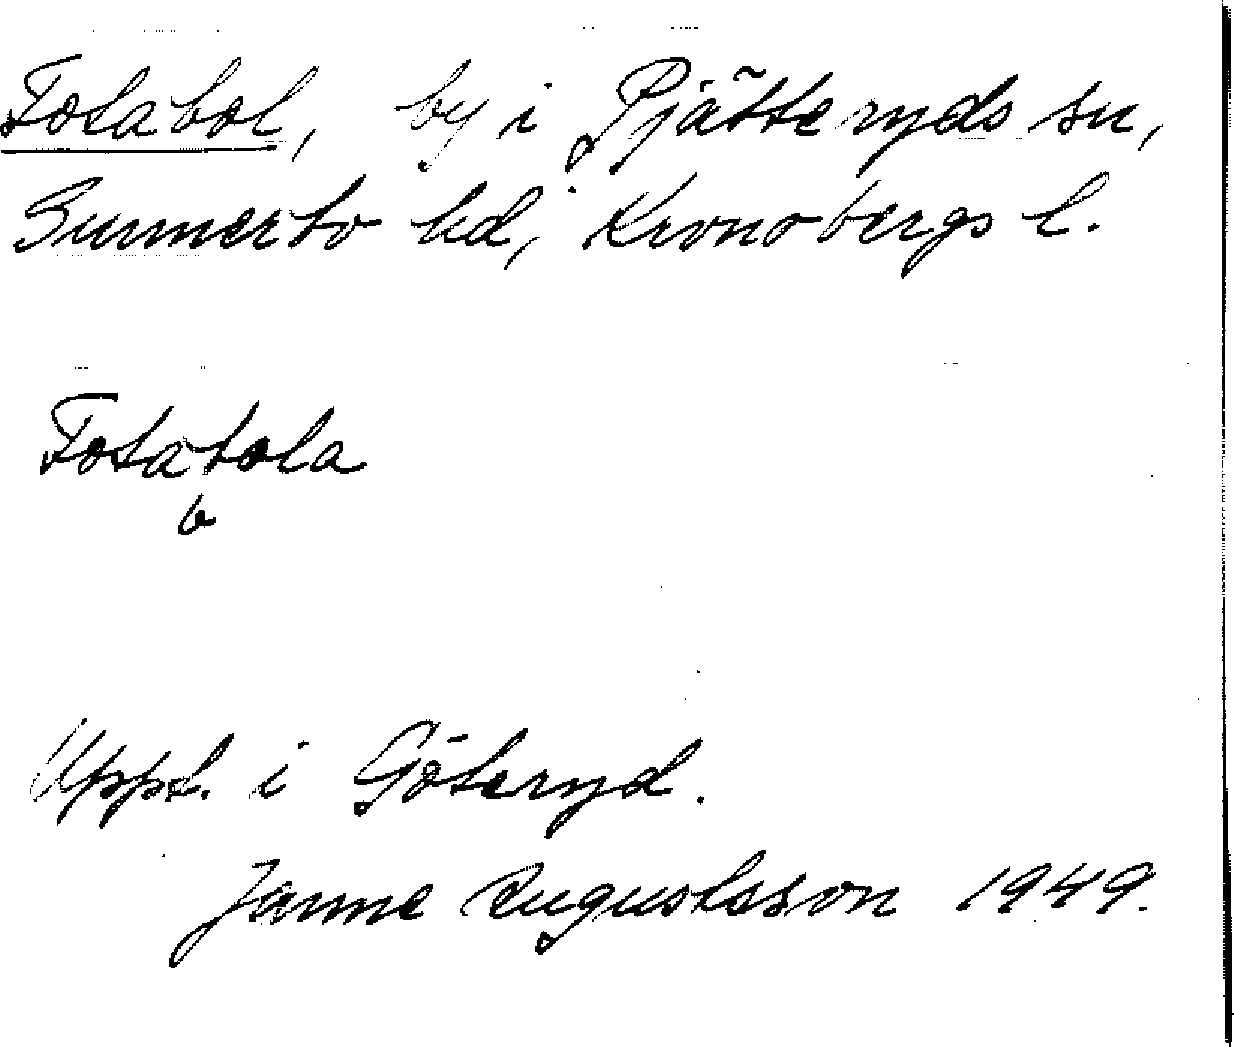 Fotabol, by i Pjätteryds sn,
Sunnerbo hd, Kronobergs l.
Fotabola
b
Uppt. i Göteryd.
Janne Augustsson 1949.